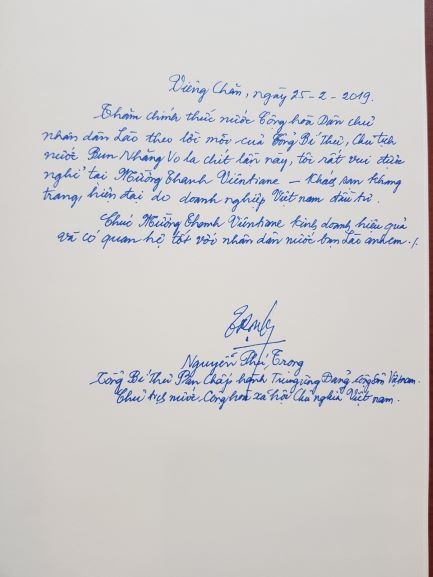 Viêng Chăn, ngày 25-2-2019.
Thăm chính thức nước Cộng hòa Dân chủ
nhân dân Lào theo lời mời của Tổng Bí Thư, Chủ tịch
nước Bun Nhăng Vo la chit lần này, tôi rất vui được
nghỉ tại Mường Thanh Vientiane - Khách sạn khang
trang, hiện đại do doanh nghiệp Việt Nam đầu tư.
Chúc Mường Thanh Vientiane kinh doanh hiệu quả
và có quan hệ tốt với nhân dân nước bạn Lào anh em./.
Nguyễn Phú Trọng
Tổng Bí thư Ban Chấp hành Trung ương Đảng Cộng Sản Việt Nam.
Chủ tịch nước Cộng hòa xã hội Chủ nghĩa Việt Nam.